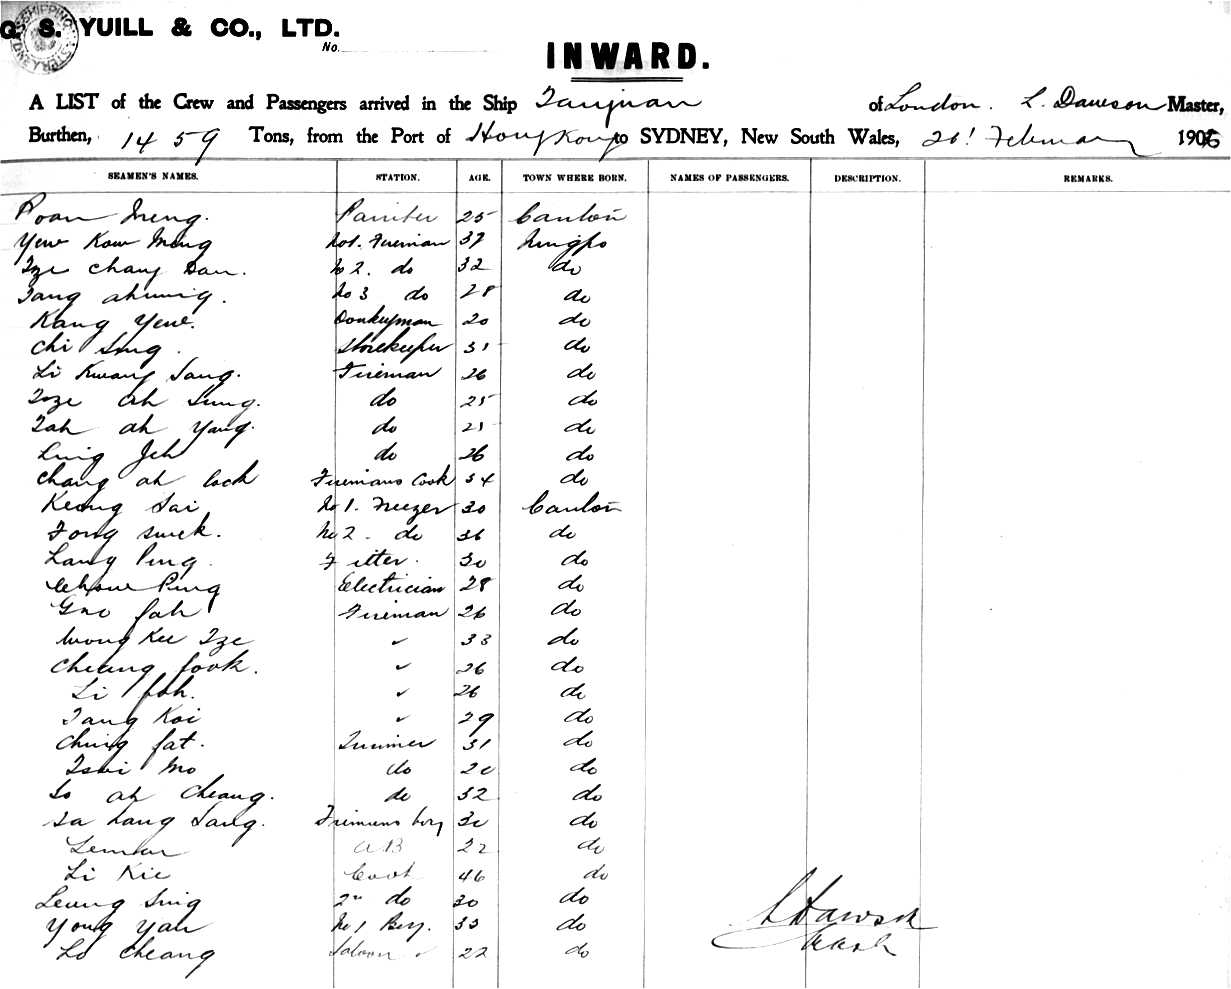 G. S. YUILL & CO., LTD.
No.
INWARD.
A LIST of the Crew and Passengers arrived in the Ship Taiyuan of London. L. Dawson Master,
Burthen, 1459 Tons, from the Port of Hong Kong to SYDNEY, New South Wales, 26! February 1906
SEAMEN'S NAMES. STATION. AGE. TOWN WHERE BORN. NAMES OF PASSENGERS. DESCRIPTION. REMARKS.
Poan Meng. Painter 25 Canton
Yew Kow Ming No1. Fireman 37 Ningpo
Tze Chang Dan. No 2. do 32 do
Tang No 3 do 28 do
Kang Yew. Donkeyman 20 do
Chi Sing. Storekeeper 31 do
Li Kwang Sang. Fireman 26 do
Tze Ah Sung. do 25 do
Tah ah Yang. do 25 do
Ling Jeh do 26 do
Chang ah Firemans Cook 34 do
Keong Sai No 1. Freezer 30 Canton
Fong Swek. No 2. do 36 do
Lang Ping. Fitter. 30 do
Chow Ping Electrician 28 do
Fireman 26 do
Wong Kee Tze ✓ 33 do
Cheang fook. ✓ 26 do
Li foh. ✓ 26 do
Tang Koi ✓ 29 do
Ching fat. Trimmer 31 do
Tsui Mo do 20 do
So ah Cheang. do 32 do
Sa Lang Sang. Firemans boy 30 do
AB 22 do
Li Kie Cook 46 do
Leung Sing 2nd do 30 do
Yong Yau No 1 Boy. 33 do
Lo Cheang Saloon ✓ 22 do
L Dawson